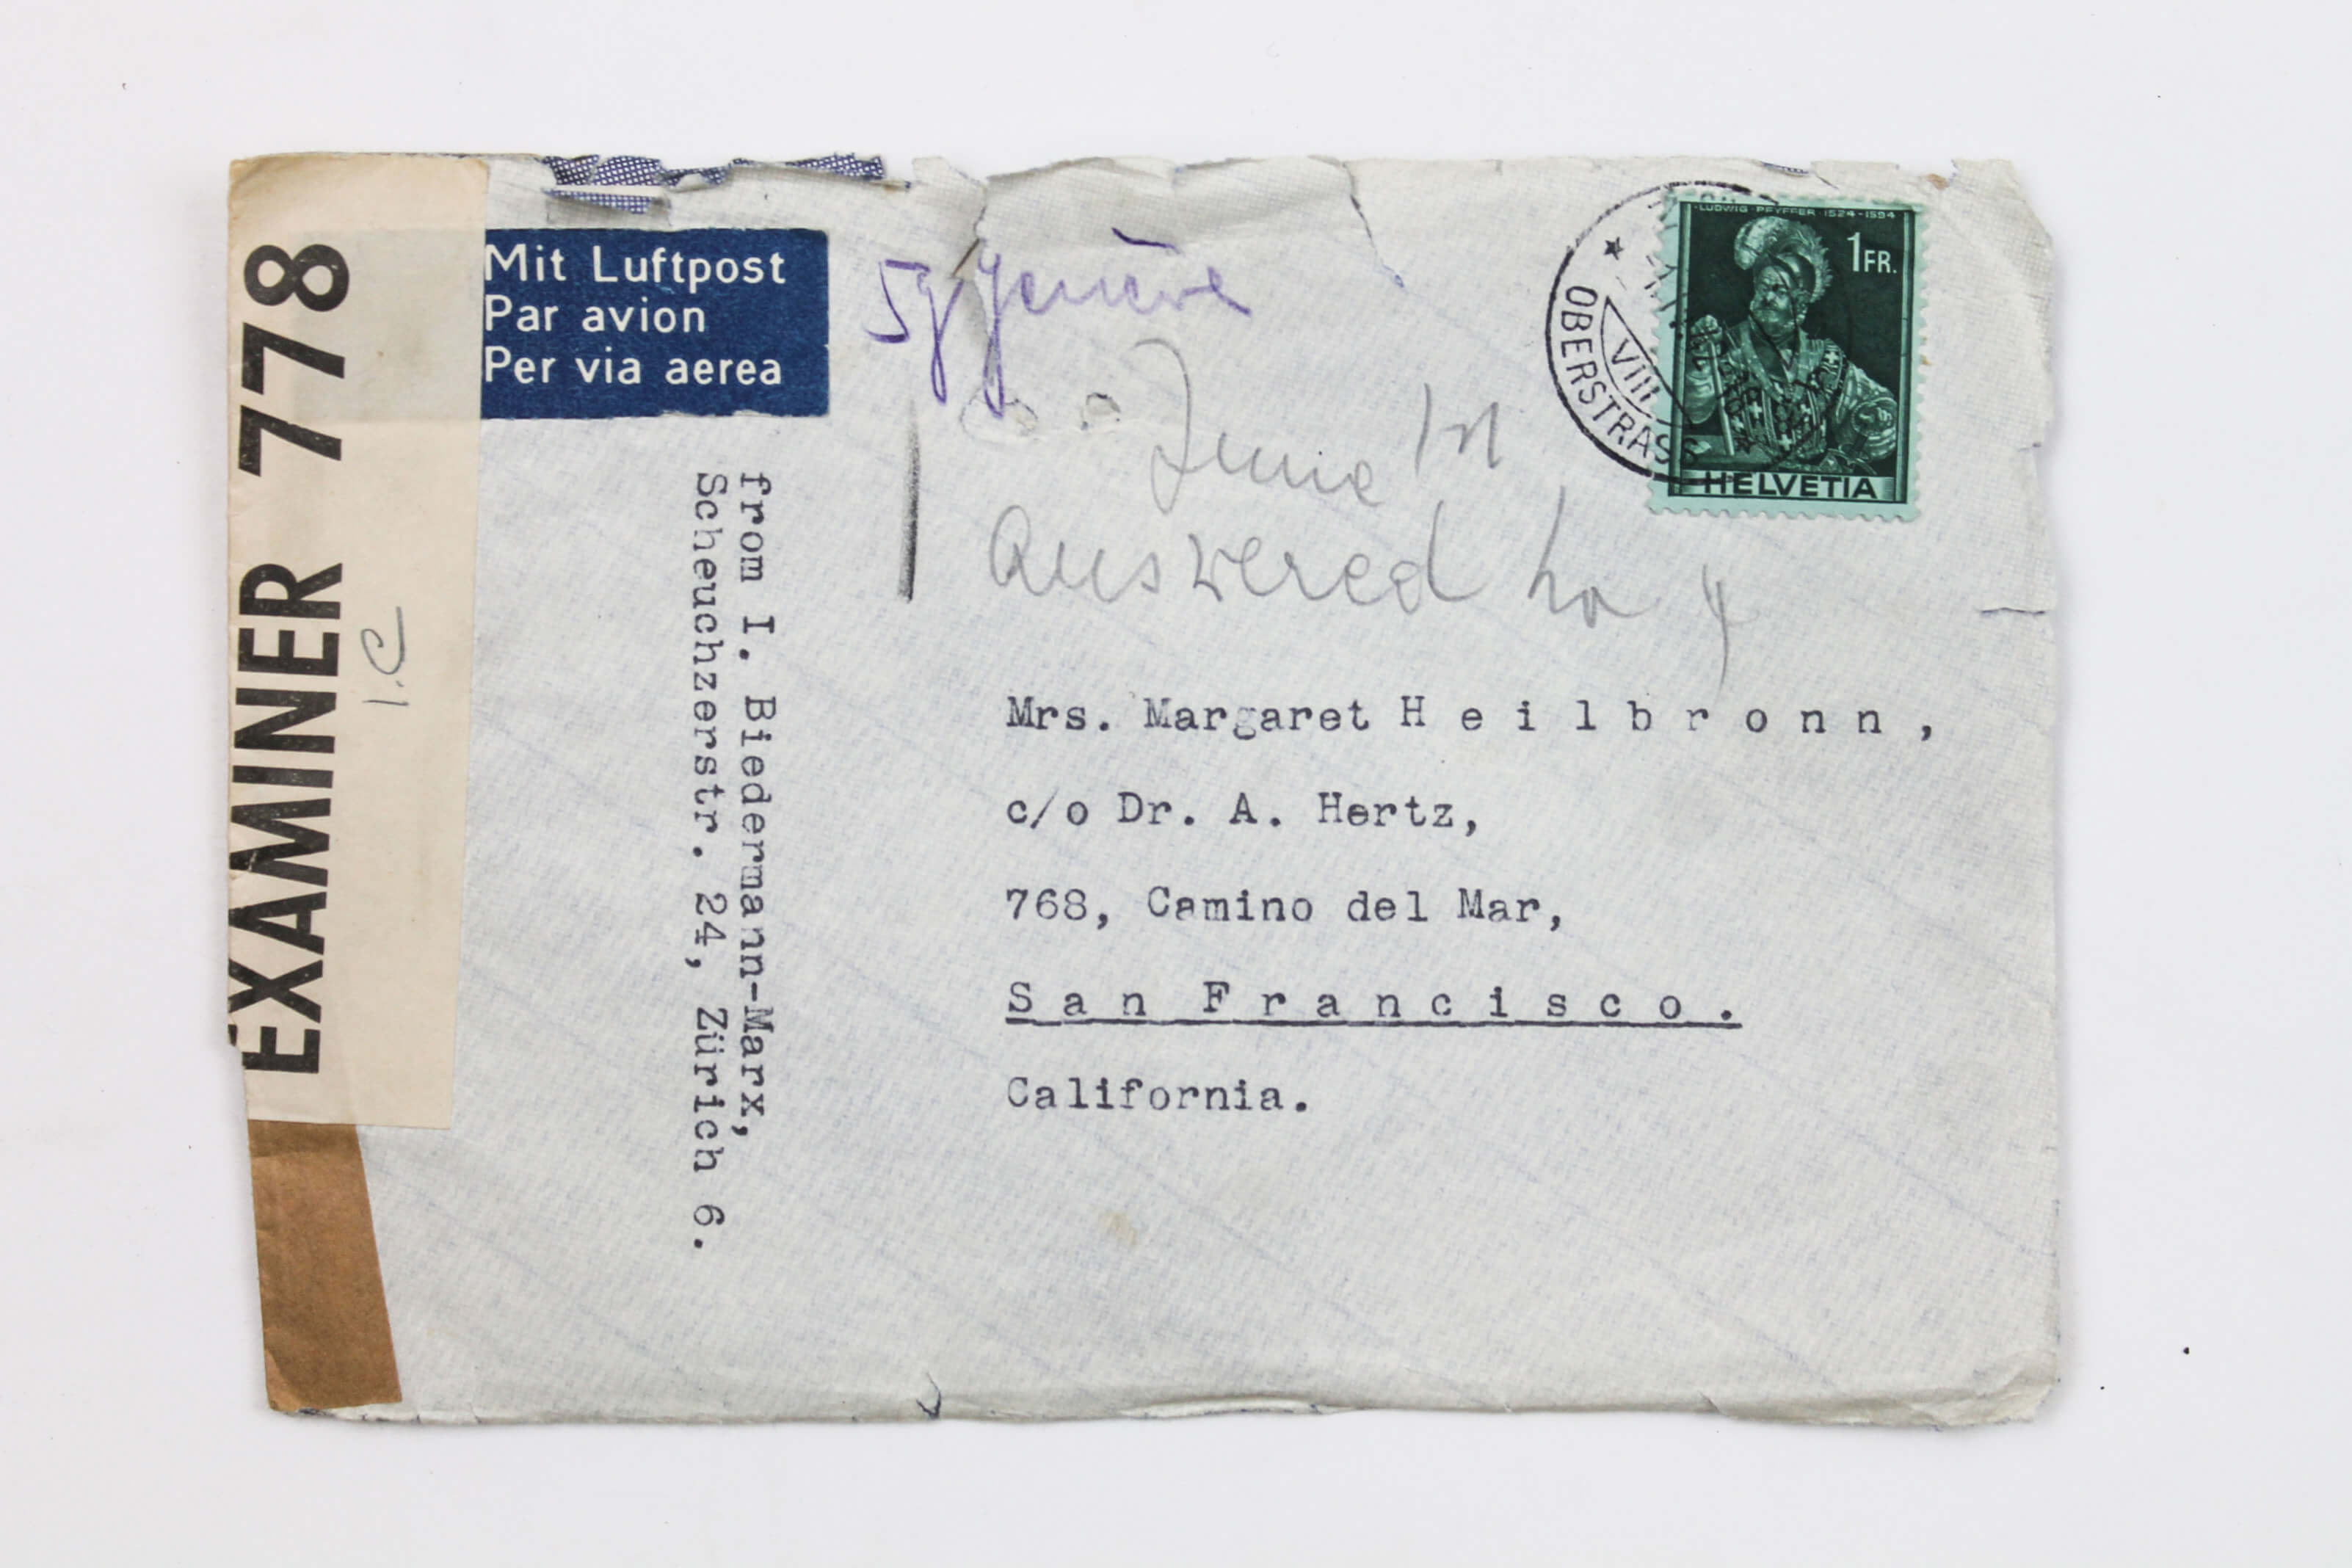 EXAMINER 778
I.C
Mit Luftpost
Par avion
Per via aerea
5g Genève
June 1st
Answered
LUDWIG PFYFFER 1524-1594
1FR.
HELVETIA
VIII
OBERSTRASS
from I. Biedermann-Marx,
Scheuchzerstr. 24, Zürich 6.
Mrs. Margaret H e i l b r o n n ,
c/o Dr. A. Hertz,
768, Camino del Mar,
S a n F r a n c i s c o .
California.